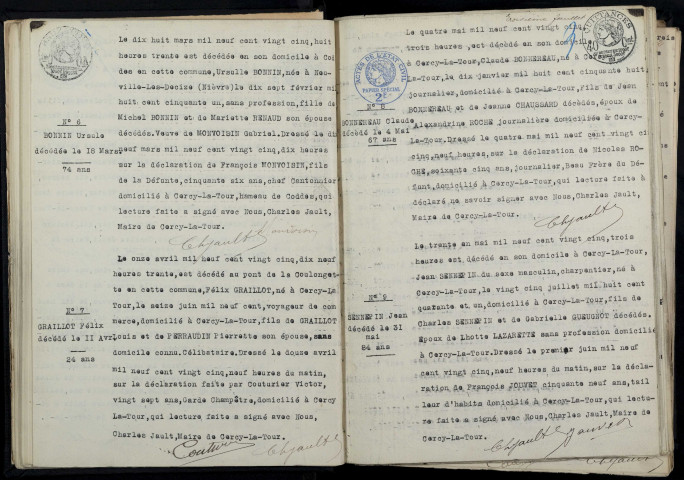 Le dix huit mars mil neuf cent vingt cinq,huit
heures trente est décédée en son domicile à Cod
des en cette commune,Ursulle BONNIN,née à Neu-
ville-Les-Decize (Nièvre)le dix sept février mil
huit cent cinquante un,sans profession,fille de
Michel BONNIN et de Mariette RENAUD son épouse
décédés.Veuve de MONVOISIN Gabriel.Dressé le dix
neuf mars mil neuf cent vingt cinq,dix heures
sur la déclaration de François MONVOISIN,fils
de la Défunte,cinquante six ans,chef Cantonnier
domicilié à Cercy-La-Tour,hameau de Coddes,qui
lecture faite a signé avec Nous,Charles Jault,
Maire de Cercy-La-Tour.
N° 6
BONNIN Ursule
décédée le 18 Mars
74 ans
Le onze avril mil neuf cent vingt cinq,dix neuf
heures trente,est décédé au pont de la Coulonget-
te en cette commune,Félix GRAILLOT,né à Cercy-La
Tour,le seize juin mil neuf cent,voyageur de com
merce,domicilié à Cercy-La-Tour,fils de GRAILLOT
Louis et de PERRAUDIN Pierrette son épouse,sans
domicile connu.Célibataire.Dressé le douze avril
mil neuf cent vingt cinq,neuf heures du matin,
sur la déclaration faite par Couturier Victor,
vingt sept ans,Garde Champêtre,domicilié à Cercy
La-Tour,qui lecture faite a signé avec Nous,
Charles Jault,Maire de Cercy-La-Tour.
N° 7
GRAILLOT Félix
décédé le II Avril
24 ans
Troisième feuillet
Le quatre mai mil neuf cent vingt cinq,
trois heures,est décédé en son domicile
à Cercy-La-Tour,Claude BONNEREAU,né à Cercy
La-Tour,le dix janvier mil huit cent cinquante huit,
journalier,domicilié à Cercy-La-Tour,fils de Jean
BONNEREAU et de Jeanne CHAUSSARD décédés,époux de
Alexandrine ROCHE journalière domiciliée à Cercy-
La-Tour.Dressé le quatre mai mil neuf cent vingt ci
cinq,neuf heures,sur la déclaration de Nicolas RO-
CHE,soixante cinq ans,journalier,Beau Frère du Dé-
funt,domicilié à Cercy-La-Tour,qui lecture faite à
déclaré ne savoir signer avec Nous,Charles Jault,
Maire de Cercy-La-Tour.
ACTES DE L'ETAT CIVIL
PAPIER SPÉCIAL
N° 8
BONNEREAU Claude
décédé le 4 Mai
67 ans
Le trente en mai mil neuf cent vingt cinq,trois
heures est décédé en son domicile à Cercy-La-Tour,
Jean SENNEPIN du sexe masculin,charpentier,né à
Cercy-La-Tour,le vingt cinq juillet mil huit cent
quarante et un,domicilié à Cercy-La-Tour,fils de
Charles SENNEPIN et de Gabrielle GUEUGNOT décédés.
Epoux de Lhotte LAZARETTE sans profession domiciliée
à Cercy-La-Tour.Dressé le premier juin mil neuf
cent vingt cinq,neuf heures du matin,sur la décla-
ration de François JOUVET cinquante neuf ans,tail
leur d'habits domicilié à Cercy-La-Tour,qui lectu-
re faite a signé avec Nous,Charles Jault,Maire de
Cercy-La-Tour.
N° 9
SENNEPIN Jean
décédé le 31
mai
84 ans